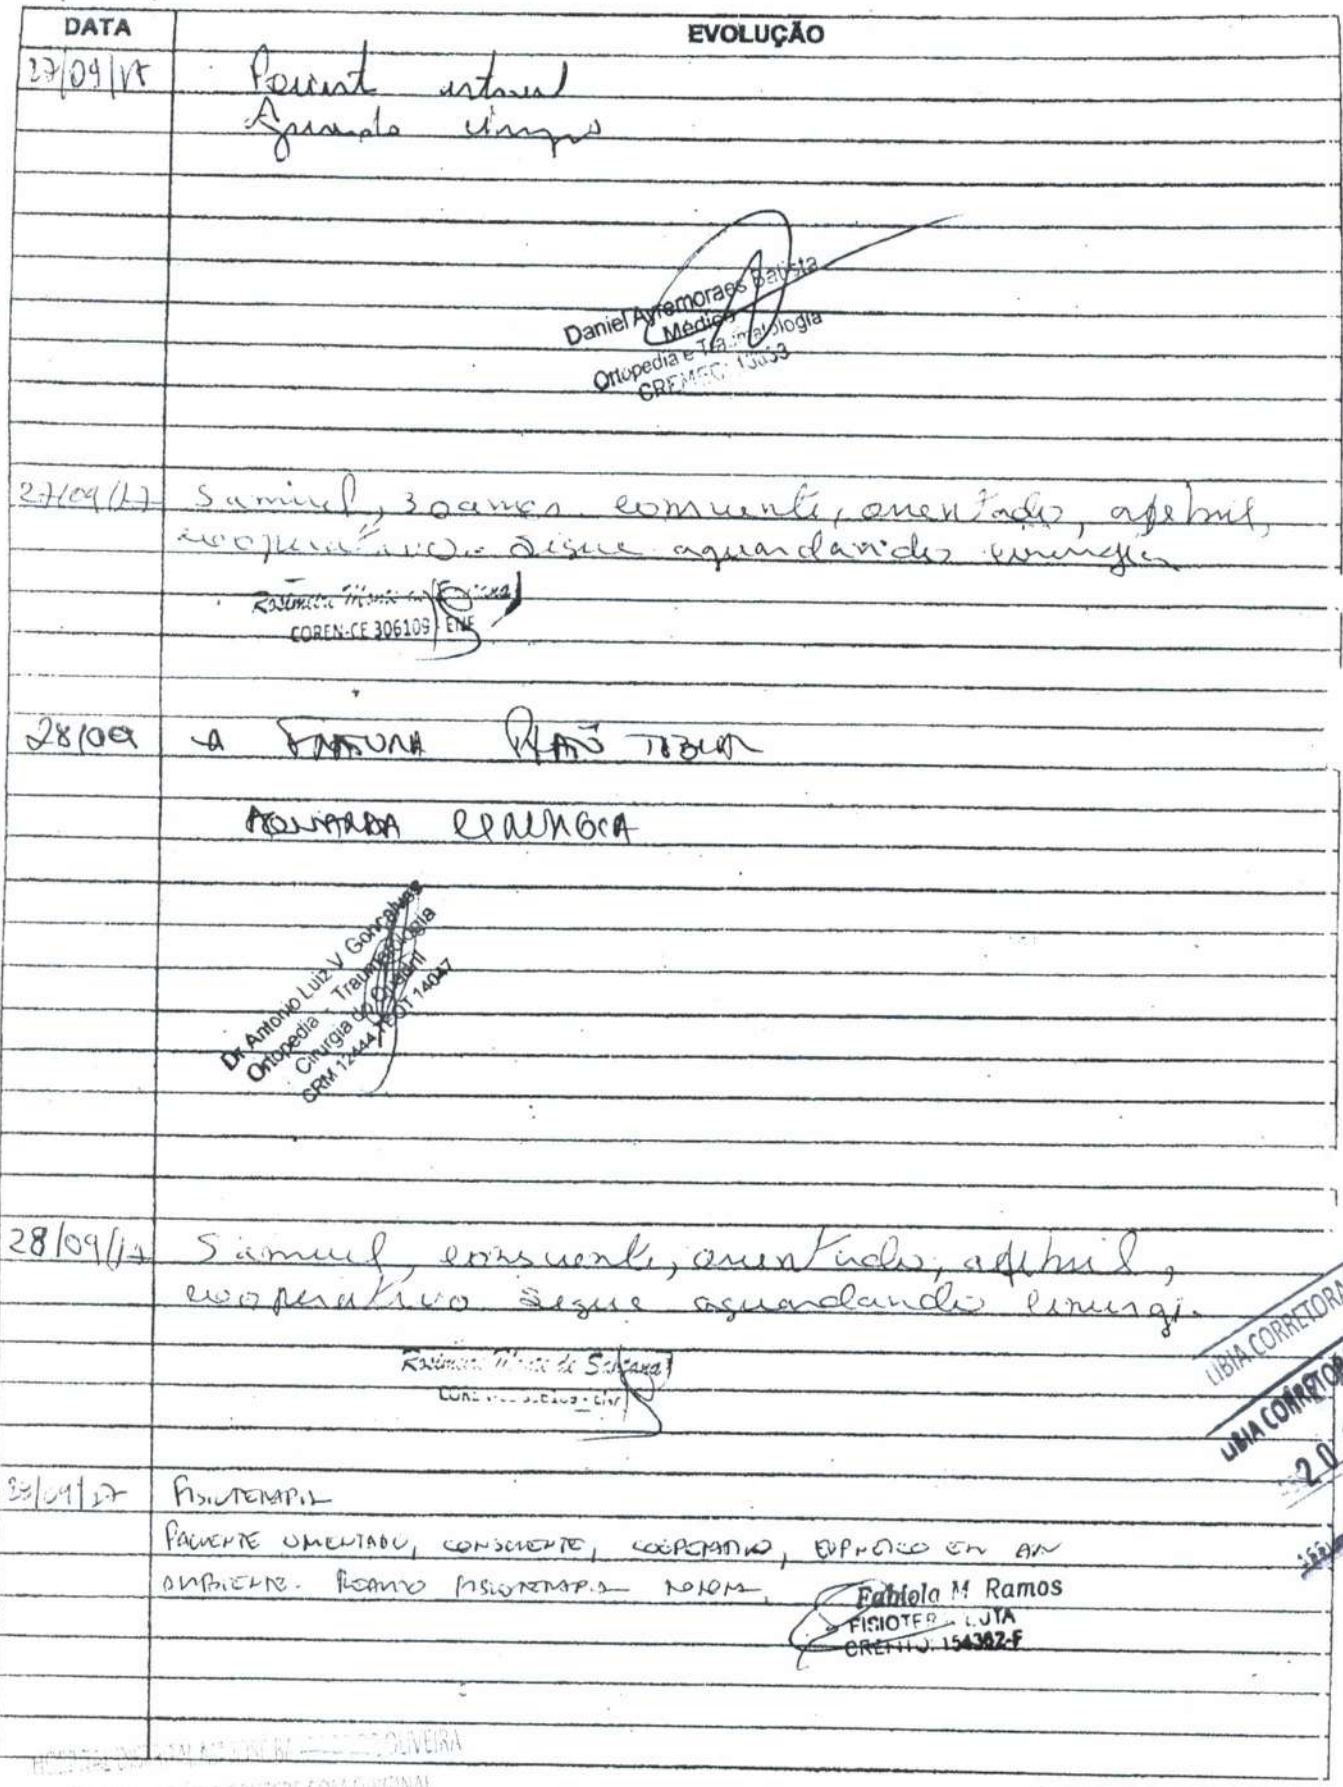 DATA EVOLUÇÃO
27/09/17 Pacient estavel
Aguarda cirurgia
Daniel Ayremoraes Batista
Médico
Ortopedia e Traumatologia
CREMEC:
27/09/17 Samuel, 30 anos. consciente, orientado, afebril,
cooperativo. Segue aguardando cirurgia
COREN-CE 306109 ENF
28/09 FRATURA PLATÔ TIBIAL
AGUARDA CIRURGIA
Dr. Antonio Luiz V Gonçalves
Ortopedia - Traumatologia
Cirurgia do Quadril
CRM 12444 TEOT 14047
28/09/17 Samuel, consciente, orientado, afebril,
cooperativo segue aguardando cirurgi
de Santana
LIBIA CORRETORA
LIBIA CORRETOR
20
28/09/17 FISIOTERAPIA
PACIENTE ORIENTADO, CONSCIENTE, COOPERATIVO, EUPNEICO EM AR
AMBIENTE. REALIZO FISIOTERAPIA MOTORA.
Fabiola M Ramos
FISIOTERAPEUTA
CREFITO: 154382-F
HOSPITAL OLIVEIRA